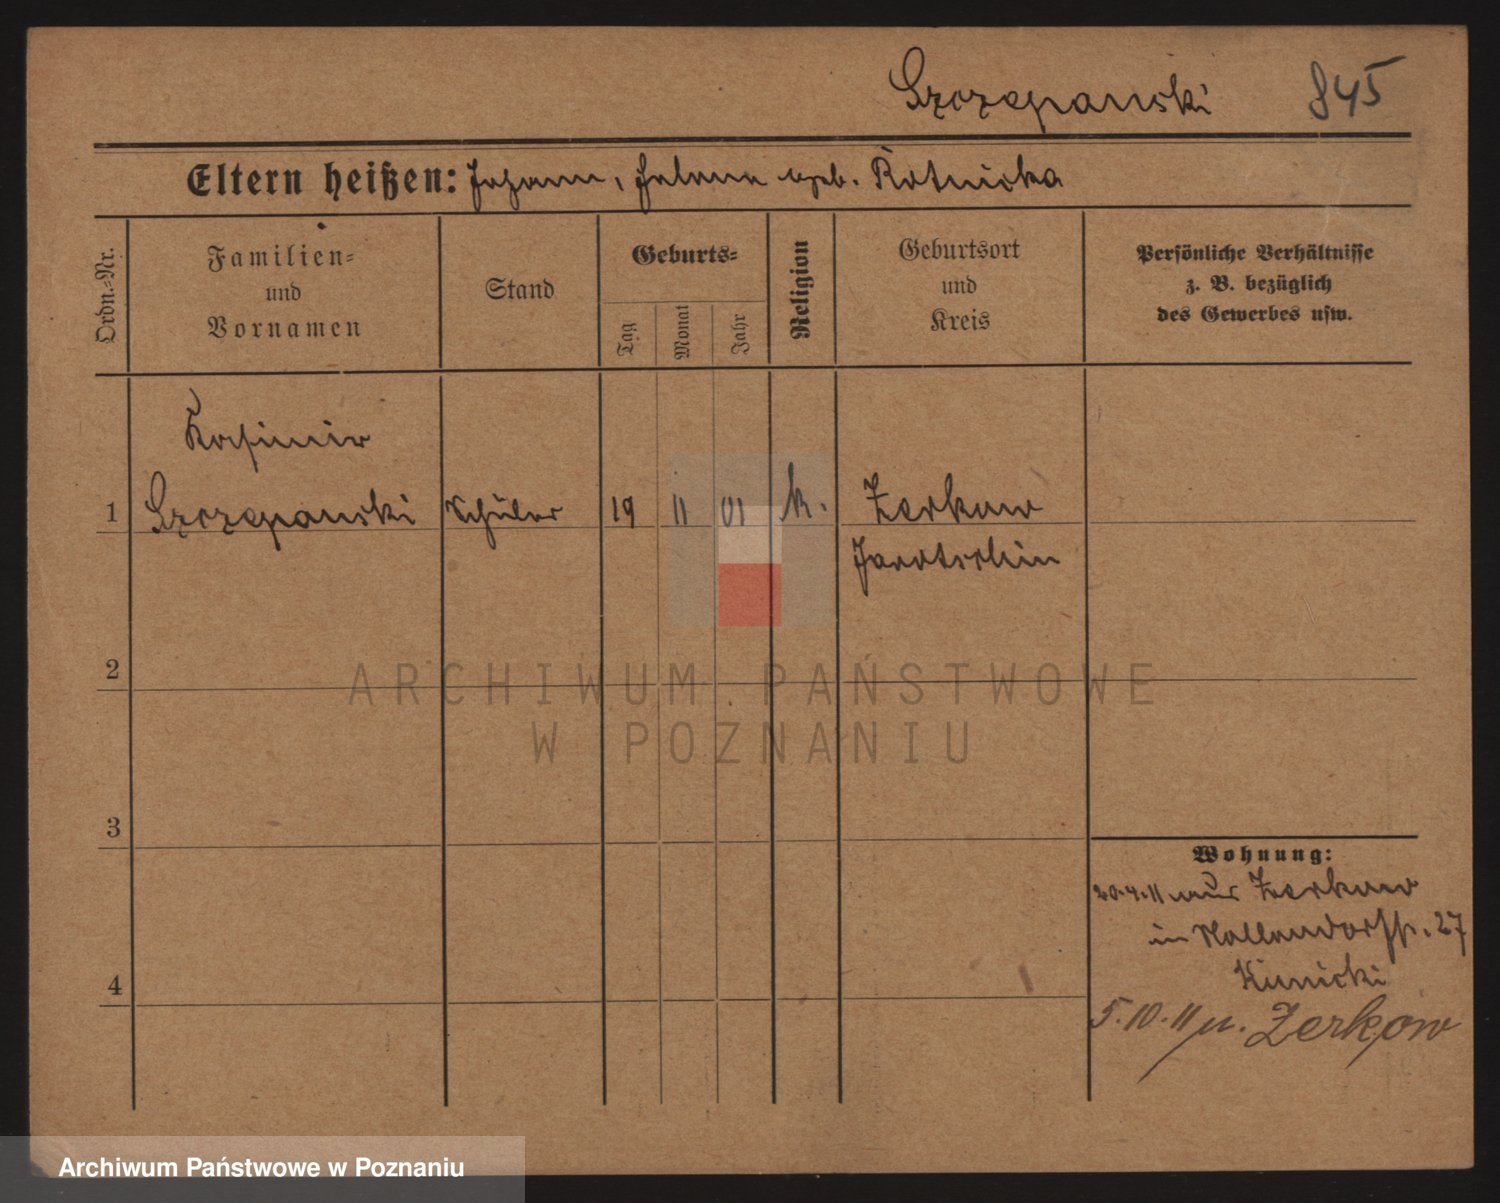 Szczepanski 845
Eltern heißen: Johann, Helena geb. Rotnicka
Ordn.=Nr.
Familien=
und
Vornamen
Stand
Geburts=
Tag
Monat
Jahr
Religion
Geburtsort
und
Kreis
Persönliche Verhältnisse
z. B. bezüglich
des Gewerbes usw.
Kasimir
1 Szczepanski Schüler 19 11 01 k. Zerkow
Jarotschin
2
ARCHIWUM PAŃSTWOWE
W POZNANIU
3
Wohnung:
20.4.11 aus Zerkow
in Hollendorffstr. 27
Kunicki
4
5.10.11 n. Zerkow
Archiwum Państwowe w Poznaniu